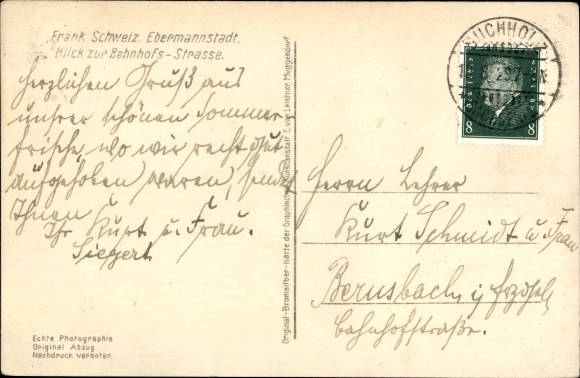 Fränk Schweiz. Ebermannstadt.
Blick zur Bahnhofs-Strasse.
Herzlichen Gruß aus
unsrer schönen Sommer-
frische, wo wir recht gut
aufgehoben waren, sendet
Ihnen
Ihr Kurt u. Frau.
Siegert
Echte Photographie
Original Abzug
Nachdruck verboten
Original-Bromsilber-Karte der Graphischen Kunstanstalt E. von Leistner, Muggendorf
BUCHHOLZ
8 8
Herrn Lehrer
Kurt Schmidt u. Frau
Bernsbach i/ Erzgeb.
Bahnhofstraße.